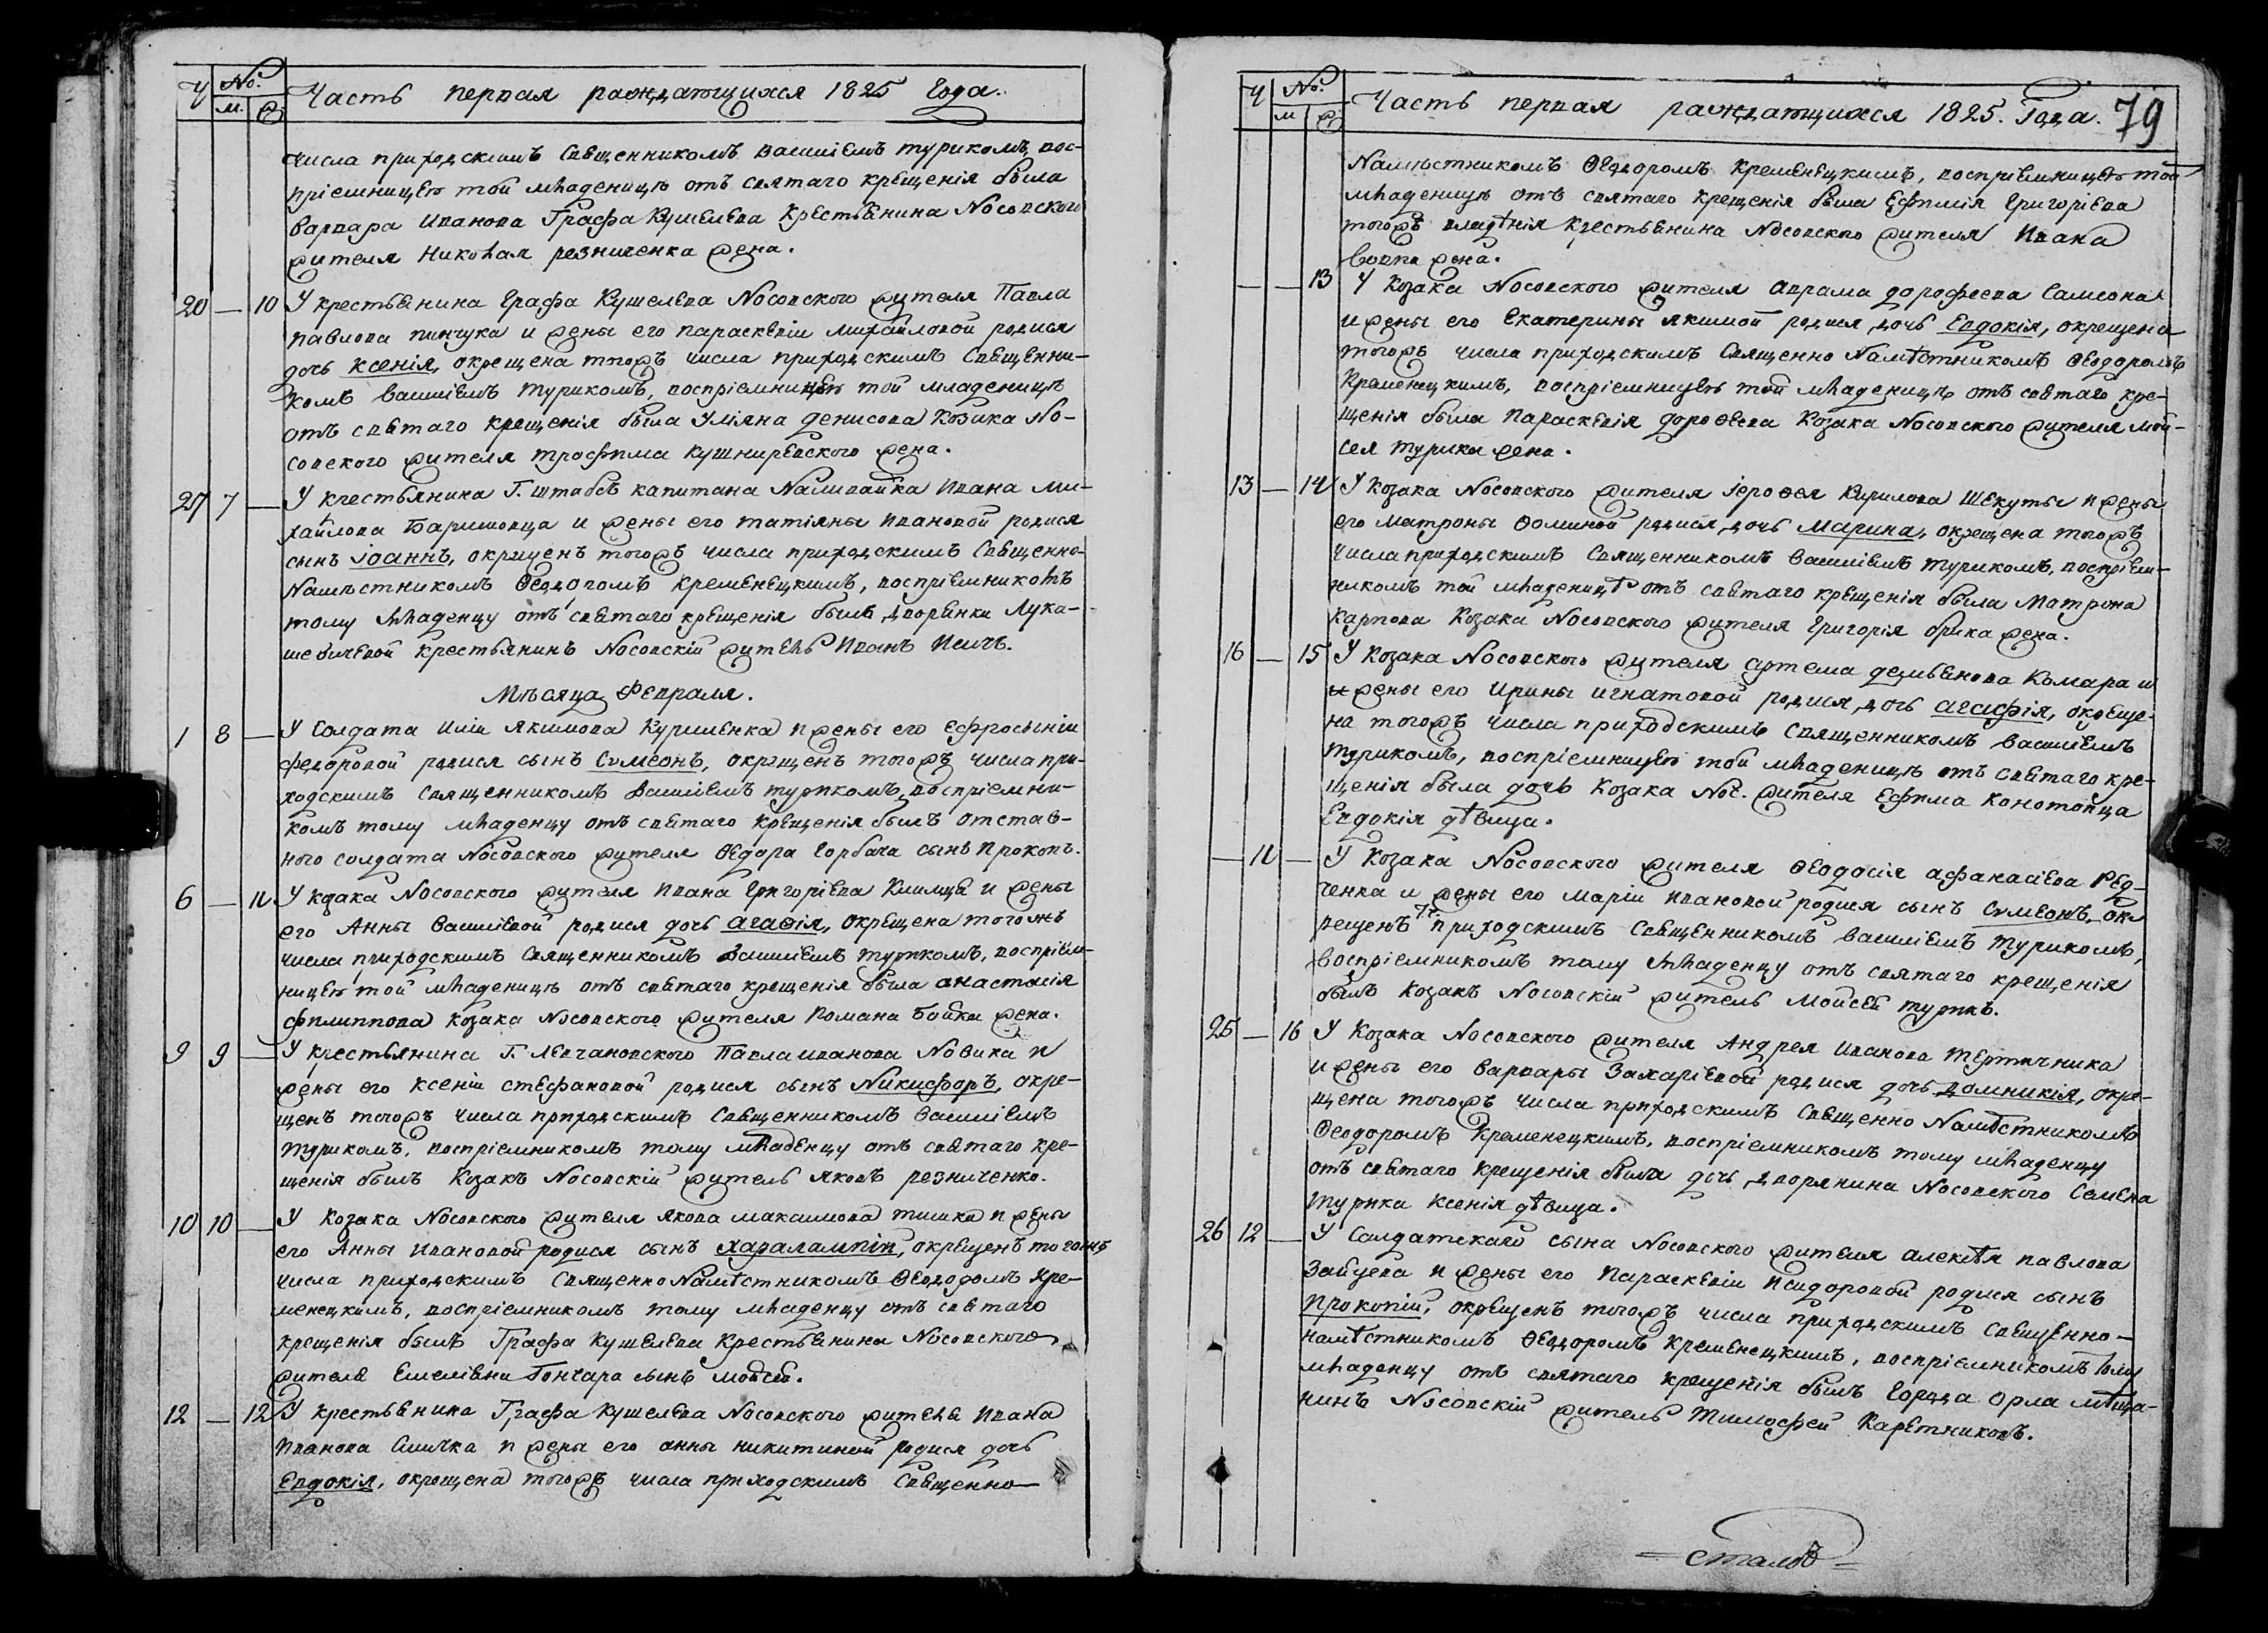 Ч № м. ж. Часть первая раждающихся 1825 Года.
числа приходскимъ Священникомъ Василіемъ туриkомъ, вос-
пріемницею той младеницѣ отъ святаго крещенія была
варвара Иванова Графа Кушелева Крестьянина Носовского
жителя Николая резниченка жена.
20 — 10 У крестьянина Графа Кушелева Носовского жителя Павла
павлова пинчука и жены его параскевіи михайловой родися
дочь ксенія, окрещена тогожъ числа приходскимъ Священни-
комъ василіемъ туриkомъ, воспріемницею той младеницѣ
отъ святаго крещенія была Уліяна денисова Козака Но-
совского жителя трофима кушниревского жена.
27 7 — У крестьянина Г. штабсъ капитана Наливайка Ивана ми-
хайлова Баришовца и жены его татіяны ивановой родися
сынъ іоаннъ, окрищенъ тогожъ числа приходскимъ Священно-
Намѣстникомъ Ѳеодоромъ кременецкимъ, воспріемникомъ
тому младенцу отъ святаго крещенія былъ дворянки Лука-
шевичевой крестьянинъ Носовскій житель Иванъ
Мѣсяца Февраля.
1 8 — У Солдата Иліи Якимова Куриленка и жены его Ефросыніи
федоровой родися сынъ Сумеонъ, окрещенъ тогожъ числа при-
ходскимъ священникомъ Василіемъ туриkомъ, воспріемни-
комъ тому младенцу отъ святаго крещенія былъ отстав-
ного солдата Носовского жителя Ѳедора Горбача сынъ Прокопъ.
6 — 11 У козака Носовского жителя Ивана Григоріева Климца и жены
его Анны Василіевой родися дочь Агаѳія, окрещена тогожъ
числа приходскимъ священникомъ Василіемъ туриkомъ, воспріем-
ницею той младеницѣ отъ святаго крещенія была анастасія
филиппова козака Носовского жителя Романа Бойка жена.
9 9 — У крестьянина Г. Левчановского Павла иванова Новика и
жены его ксеніи стефановой родися сынъ Никифоръ, окре-
щенъ тогожъ числа приходскимъ Священникомъ василіемъ
туриkомъ, воспріемникомъ тому младенцу отъ святаго кре-
щенія былъ Козакъ Носовскій житель Яковъ резниченко.
10 10 — У Козака Носовского жителя Якова максимова тишка и жены
его Анны Ивановой родися сынъ харалампій, окрещенъ тогожъ
числа приходскимъ Священно Намѣстникомъ Ѳеодоромъ Кре-
менецкимъ, воспріемникомъ тому младенцу отъ святаго
крещенія былъ Графа Кушелева Крестьянина Носовского
жителя Емеліяна Гончара сынъ мойсей.
12 — 12 У крестьянина Графа Кушелева Носовского жителя Ивана
Иванова Сличка и жены его анны никитиной родися дочь
Евдокія, окрещена тогожъ числа приходскимъ Священно-
Ч № м ж Часть первая раждающихся 1825. Года. 79
Намѣстникомъ Ѳеодоромъ Кременецкимъ, воспріемницею той
младеницѣ отъ святаго крещенія была Ефимія Григоріева
тогожъ владѣнія крестьянина Носовского жителя Ивана
вовка жена.
— — 13 У Козака Носовского жителя Аврама дорофеева Самсона
и жены его Екатерины якимой родися дочь Евдокія, окрещена
тогожъ числа приходскимъ Священно Намѣстникомъ Ѳеодоромъ
Кременецкимъ, воспріемницею той младеницѣ отъ святаго кре-
щенія была Параскевія дороѳеева Козака Носовского жителя мой-
сея турика жена.
13 — 14 У Козака Носовского жителя іероѳея Кирилова Шекуты и жены
его матроны Ѳоминой родися дочь Марина, окрещена тогожъ
числа приходскимъ Священникомъ Василіемъ туриkомъ, воспріем-
никомъ той младеницѣ отъ святаго крещенія была Матрона
карпова Козака Носовского жителя Григорія брика жена.
16 — 15 У Козака Носовского жителя артема демьянова Комара и
и жены его Ирины игнатовой родися дочь агафія, окреще-
на тогожъ числа приходскимъ священникомъ василіемъ
туриkомъ, воспріемницею той младеницѣ отъ святаго кре-
щенія была дочь Козака Нос. жителя Ефима Конотопца
Евдокія дѣвица.
— 11 — У Козака Носовского жителя Ѳеодосія афанасіева Ред-
ченка и жены его маріи ивановой родися сынъ Сумеонъ, ок-
рещенъ приходскимъ Священникомъ василіемъ туриkомъ,
воспріемникомъ тому младенцу отъ святаго крещенія
былъ Козакъ Носовскій житель Мойсей туриkъ.
25 — 16 У Козака Носовского жителя Андрея иванова тертичника
и жены его варвары Захаріевой родися дочь домникія, окре-
щена тогожъ числа приходскимъ Священно Намѣстникомъ
Ѳеодоромъ Кременецкимъ, воспріемникомъ тому младенцу
отъ святаго крещенія была дочь дворянина Носовского Семена
Турика Ксенія дѣвица.
26 12 — У Солдатскаго сына Носовского жителя алексѣя павлова
Зайцева и жены его Параскевіи исидоровой родися сынъ
Прокопій, окрещенъ тогожъ числа приходскимъ Священно-
намѣстникомъ Ѳеодоромъ Кременецкимъ, воспріемникомъ тому
младенцу отъ святаго крещенія былъ Города Орла мѣща-
нинъ Носовскій житель Тимофей Каретниковъ.